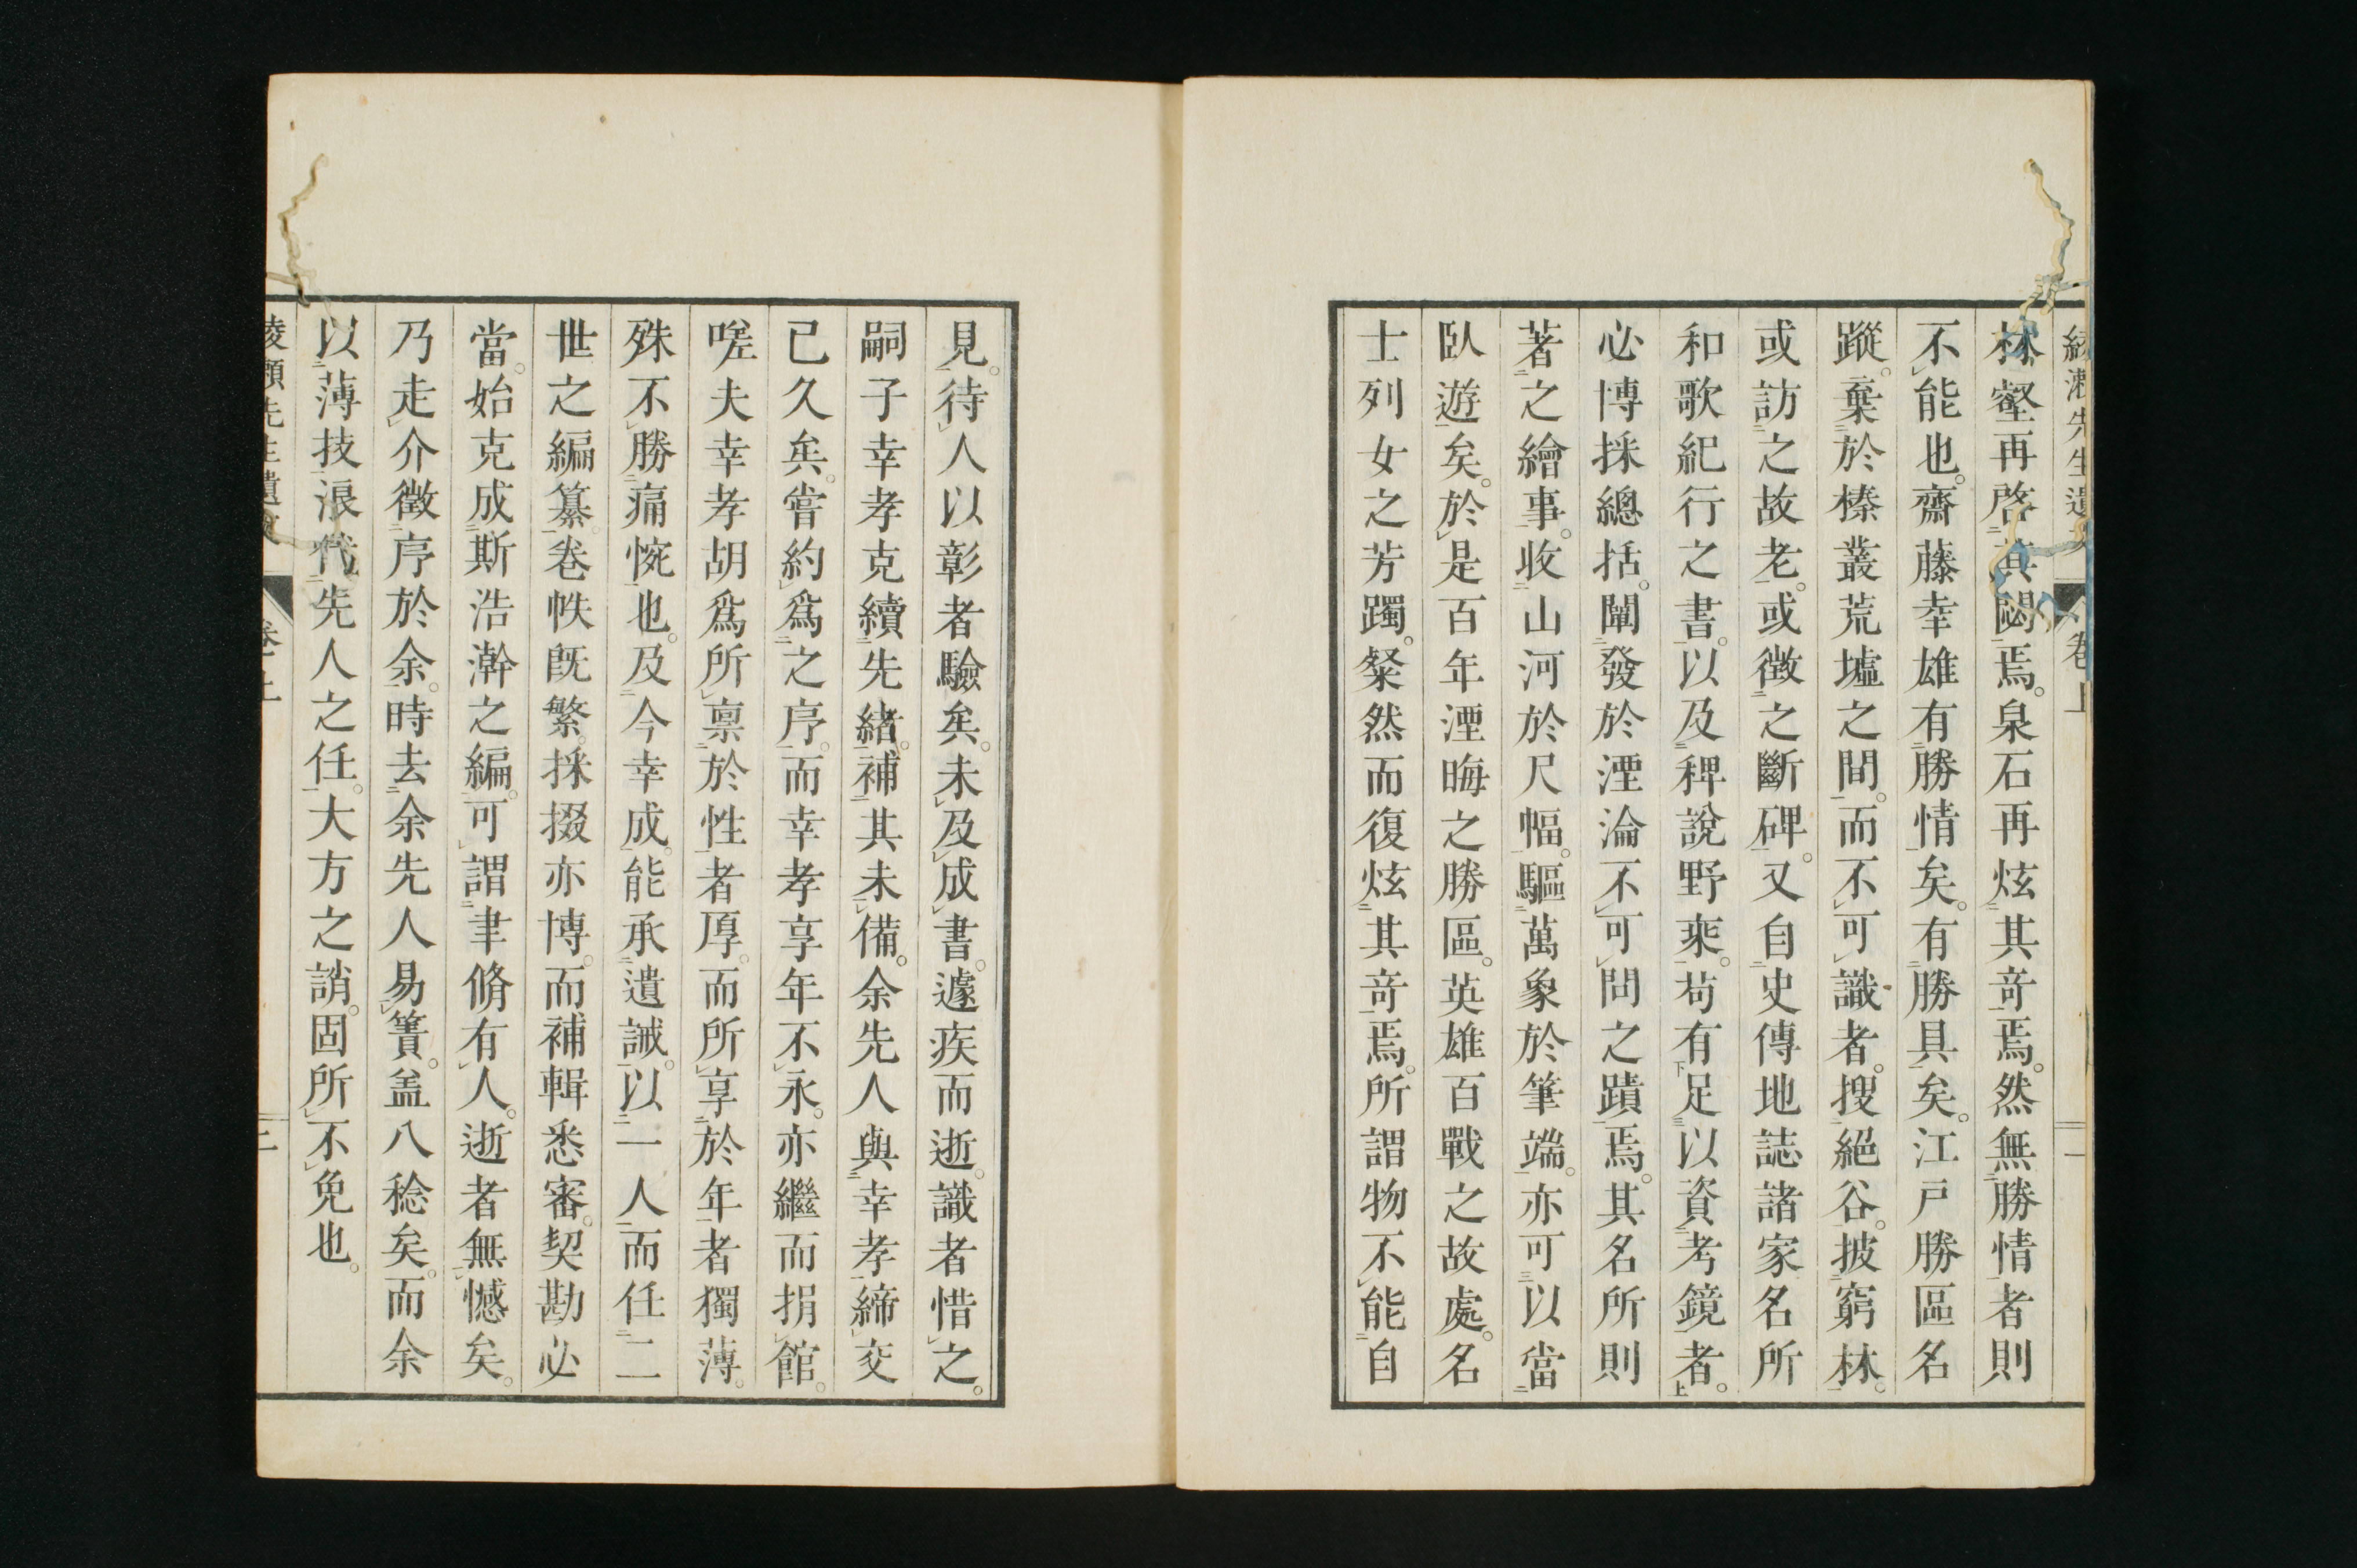 綾瀨先生遺文 卷上 一
林壑再啓其閟焉。泉石再炫其奇焉。然無勝情者則
不能也。齋藤幸雄有勝情矣。有勝具矣。江戸勝區名
蹤。棄於榛叢荒墟之間。而不可識者。搜絕谷。披窮林。
或訪之故老。或徵之斷碑。又自史傳地誌諸家名所
和歌紀行之書。以及稗說野乘。苟有足以資考鏡者。
必博採總括。闡發於湮淪不可問之蹟焉。其名所則
著之繪事。收山河於尺幅。驅萬象於筆端。亦可以當
臥遊矣。於是百年湮晦之勝區。英雄百戰之故處。名
士列女之芳躅。粲然而復炫其奇焉。所謂物不能自
見。待人以彰者驗矣。未及成書。遽疾而逝。識者惜之。
嗣子幸孝克續先緒。補其未備。余先人與幸孝締交
已久矣。嘗約爲之序。而幸孝享年不永。亦繼而捐館。
嗟夫幸孝胡爲所稟於性者厚。而所享於年者獨薄。
殊不勝痛惋也。及今幸成。能承遺誡。以一人而任二
世之編纂。卷帙既繁。採掇亦博。而補輯悉審。契勘必
當。始克成斯浩瀚之編。可謂聿脩有人。逝者無憾矣。
乃走介徵序於余。時去余先人易簀。盖八稔矣。而余
以薄技浪代先人之任。大方之誚。固所不免也。
綾瀨先生遺文 卷上 二